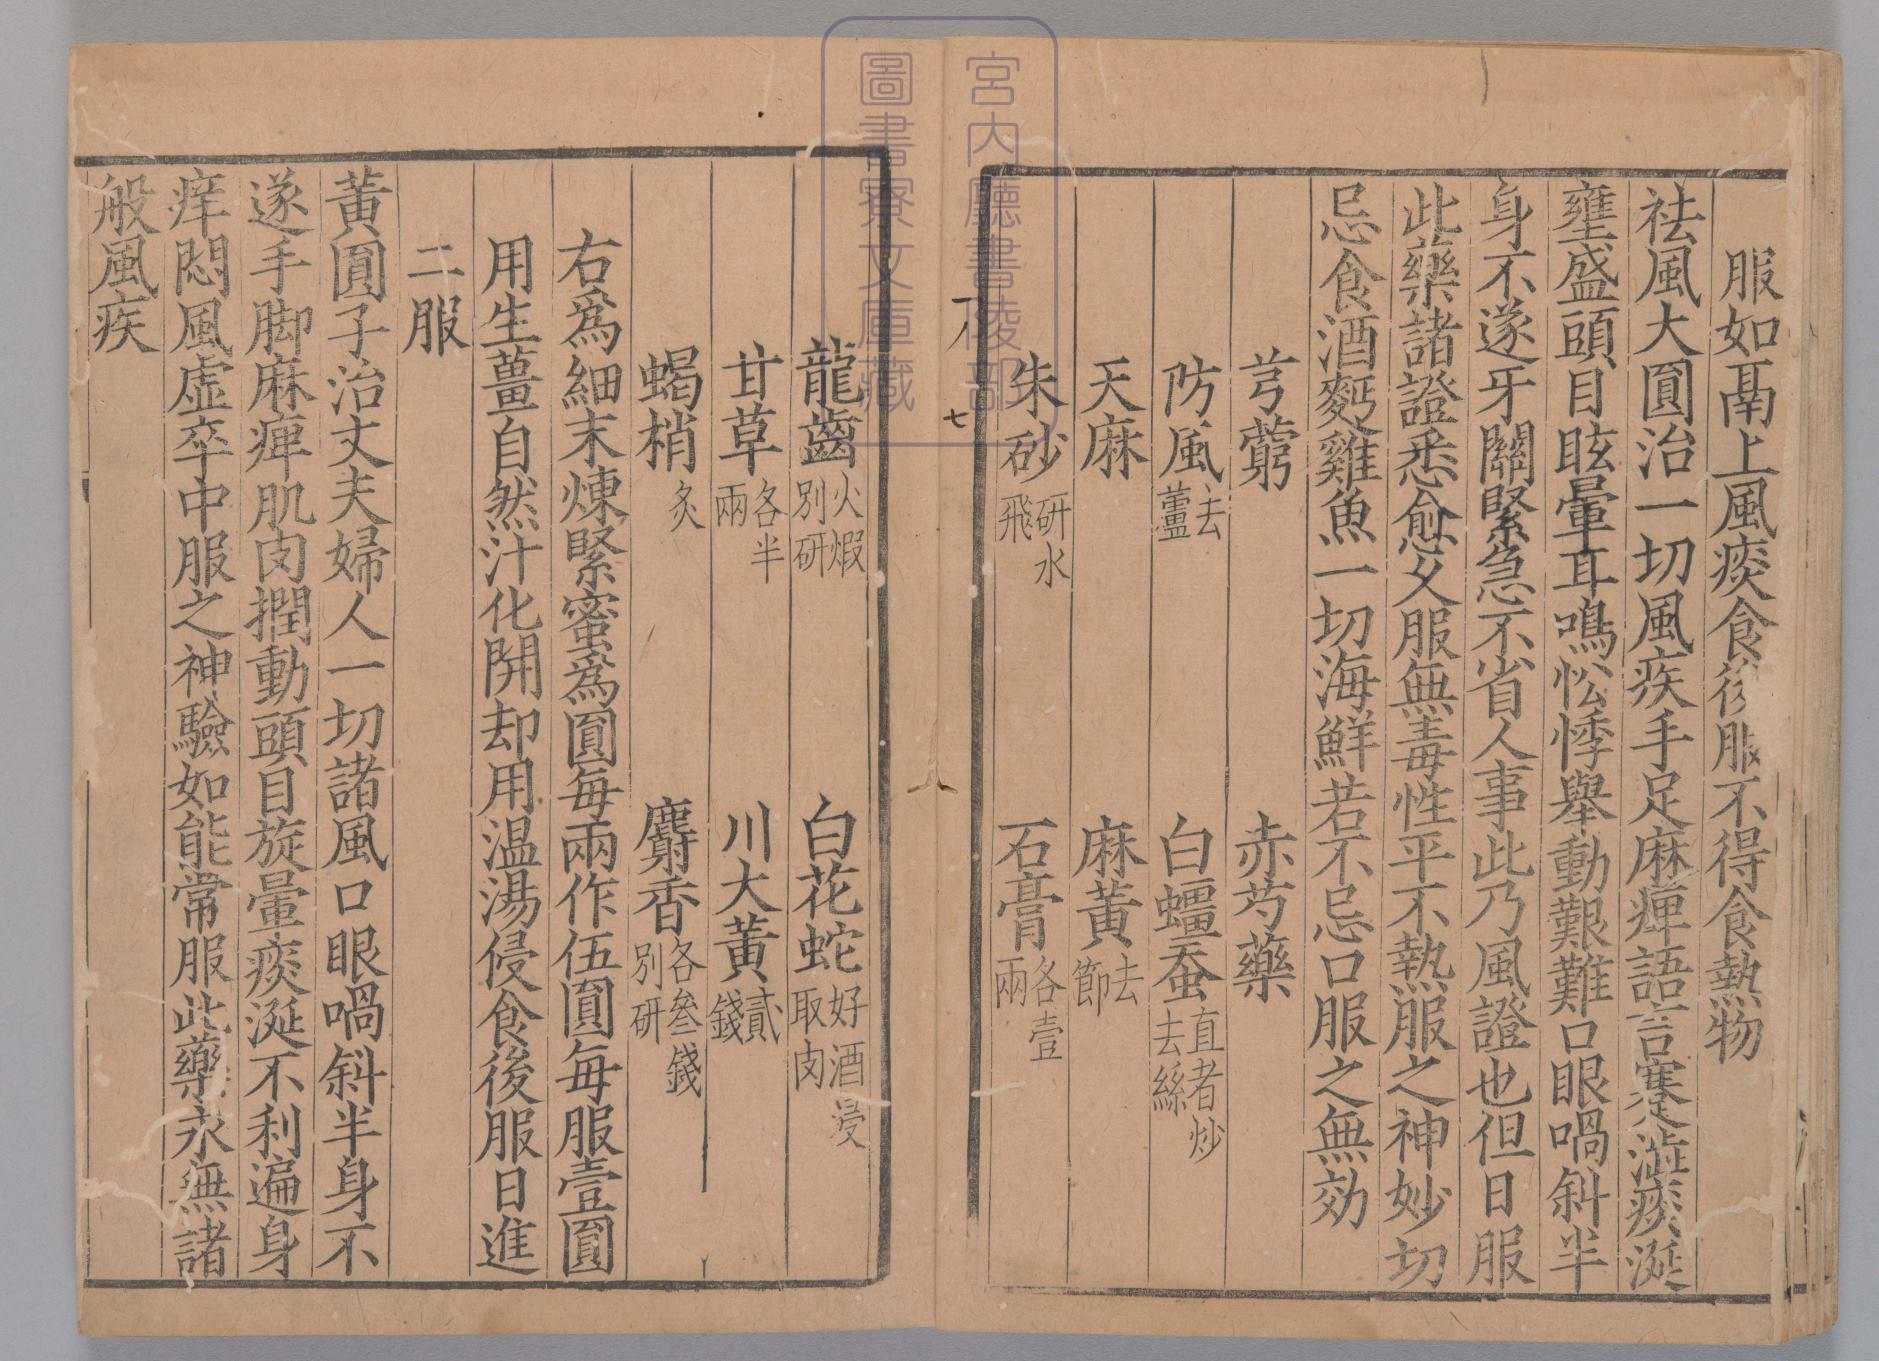 服如鬲上風痰食後服不得食熱物
祛風大圓治一切風疾手足麻痺語言蹇澁痰涎
壅盛頭目眩暈耳鳴忪悸舉動艱難口眼喎斜半
身不遂牙關緊急不省人事此乃風證也但日服
此藥諸證悉愈久服無毒性平不熱服之神妙切
忌食酒麪雞魚一切海鮮若不忌口服之無効
芎藭 赤芍藥
防風去蘆 白殭蚕直者炒去絲
天麻 麻黃去節
朱砂研水飛 石膏各壹兩
七
龍齒火煆別研 白花蛇好酒浸取肉
甘草各半兩 川大黃貳錢
蝎梢炙 麝香各叁錢別研
右爲細末煉緊蜜爲圓每兩作伍圓每服壹圓
用生薑自然汁化開却用温湯侵食後服日進
二服
黃圓子治丈夫婦人一切諸風口眼喎斜半身不
遂手脚麻痺肌肉撋動頭目旋暈痰涎不利遍身
痒悶風虛卒中服之神驗如能常服此藥永無諸
般風疾
宮内廳書陵部
圖書寮文庫藏